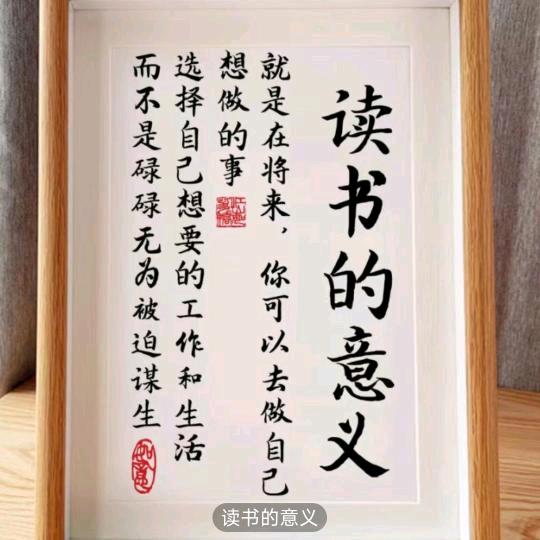 读书的意义
就是在将来，你可以去做自己
想做的事
选择自己想要的工作和生活
而不是碌碌无为被迫谋生
如意
读书的意义